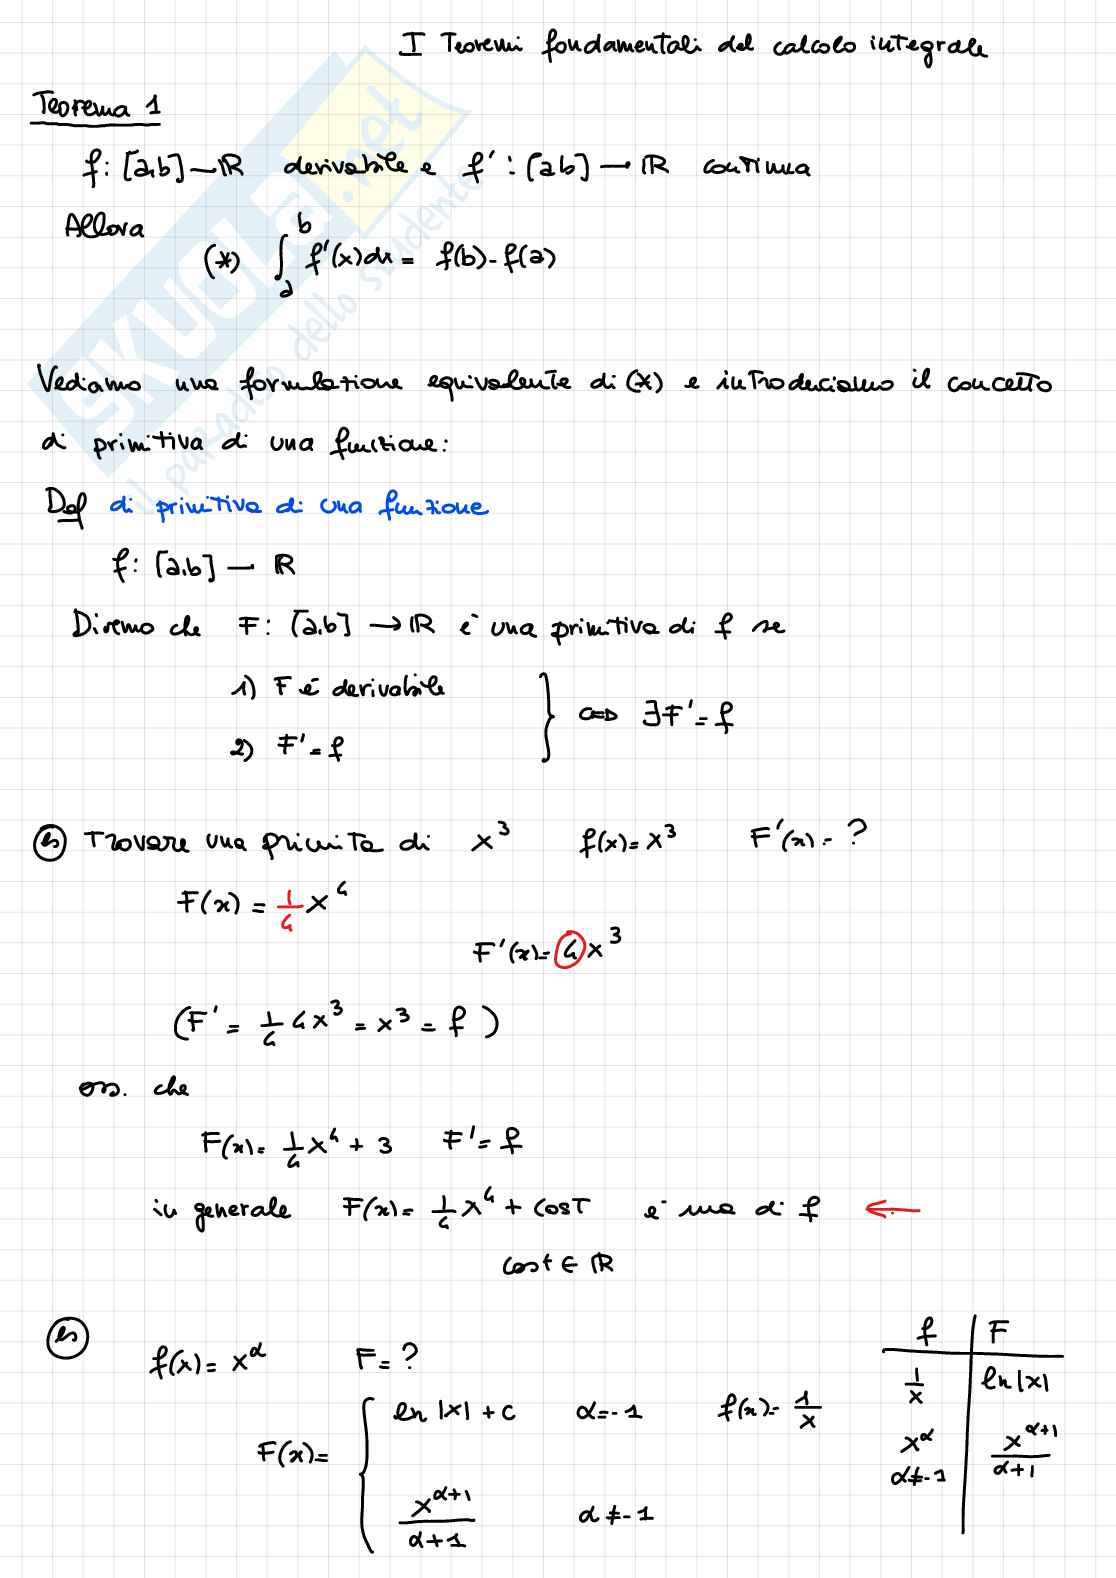 I Teoremi fondamentali del calcolo integrale
Teorema 1
f: [a,b] → ℝ derivabile e f' : [a b] → ℝ continua
Allora
(*) ∫_a^b f'(x)dx = f(b) - f(a)
Vediamo una formulazione equivalente di (*) e introduciamo il concetto
di primitiva di una funzione:
Def di primitiva di una funzione
f: [a,b] — ℝ
Diremo che F: [a,b] → ℝ è una primitiva di f se
1) F è derivabile
2) F' = f
} ⟺ ∃F' = f
es Trovare una primita di x³ f(x) = x³ F'(x) = ?
F(x) = 1/4 x⁴
F'(x) = 4x³
(F' = 1/4 4x³ = x³ = f)
oss. che
F(x) = 1/4 x⁴ + 3 F' = f
in generale F(x) = 1/4 x⁴ + cost è una di f ←
cost ∈ ℝ
es
f(x) = x^α F = ?
F(x) = {
ln |x| + c α = -1 f(x) = 1/x
x^(α+1)/(α+1) α ≠ -1
f | F
1/x | ln |x|
x^α α ≠ -1 | x^(α+1)/(α+1)
SKUOLA.net
il paradiso dello studente